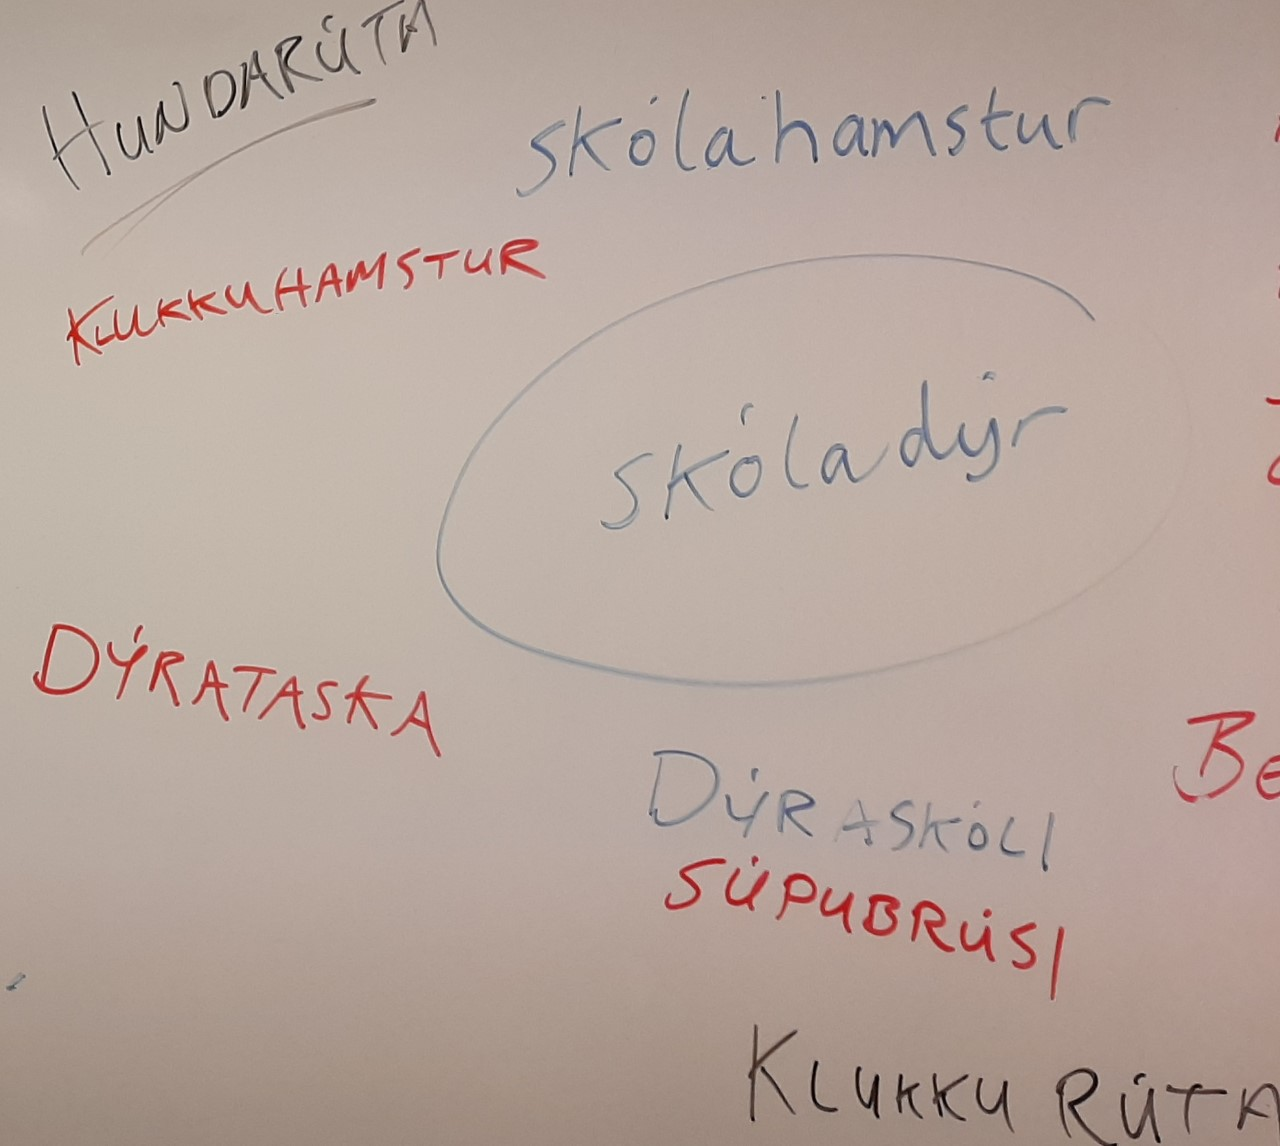 HUNDARÚTA
skólahamstur
KLUKKUHAMSTUR
skóladýr
DÝRATASKA
DÝRASKÓLI
SÚPUBRÚSI
KLUKKU RÚTA